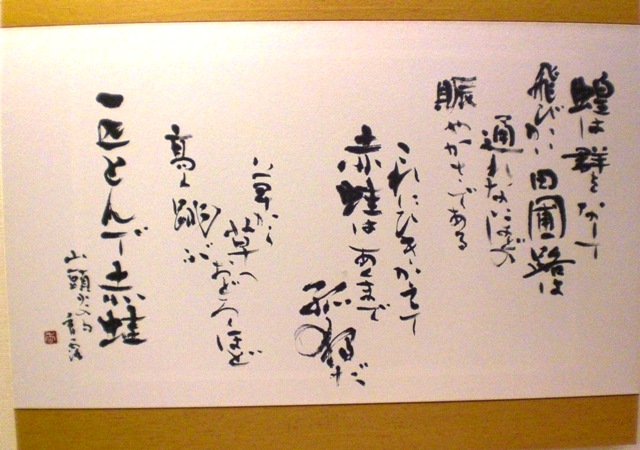 蝗は群をなして
飛びかい田圃路は
通れないほどの
賑やかさである
これにひきかえて
赤蛙はあくまで
孤独だ
草から草へ
おどろくほど
高く跳ぶ
一匹とんで赤蛙
山頭火の句